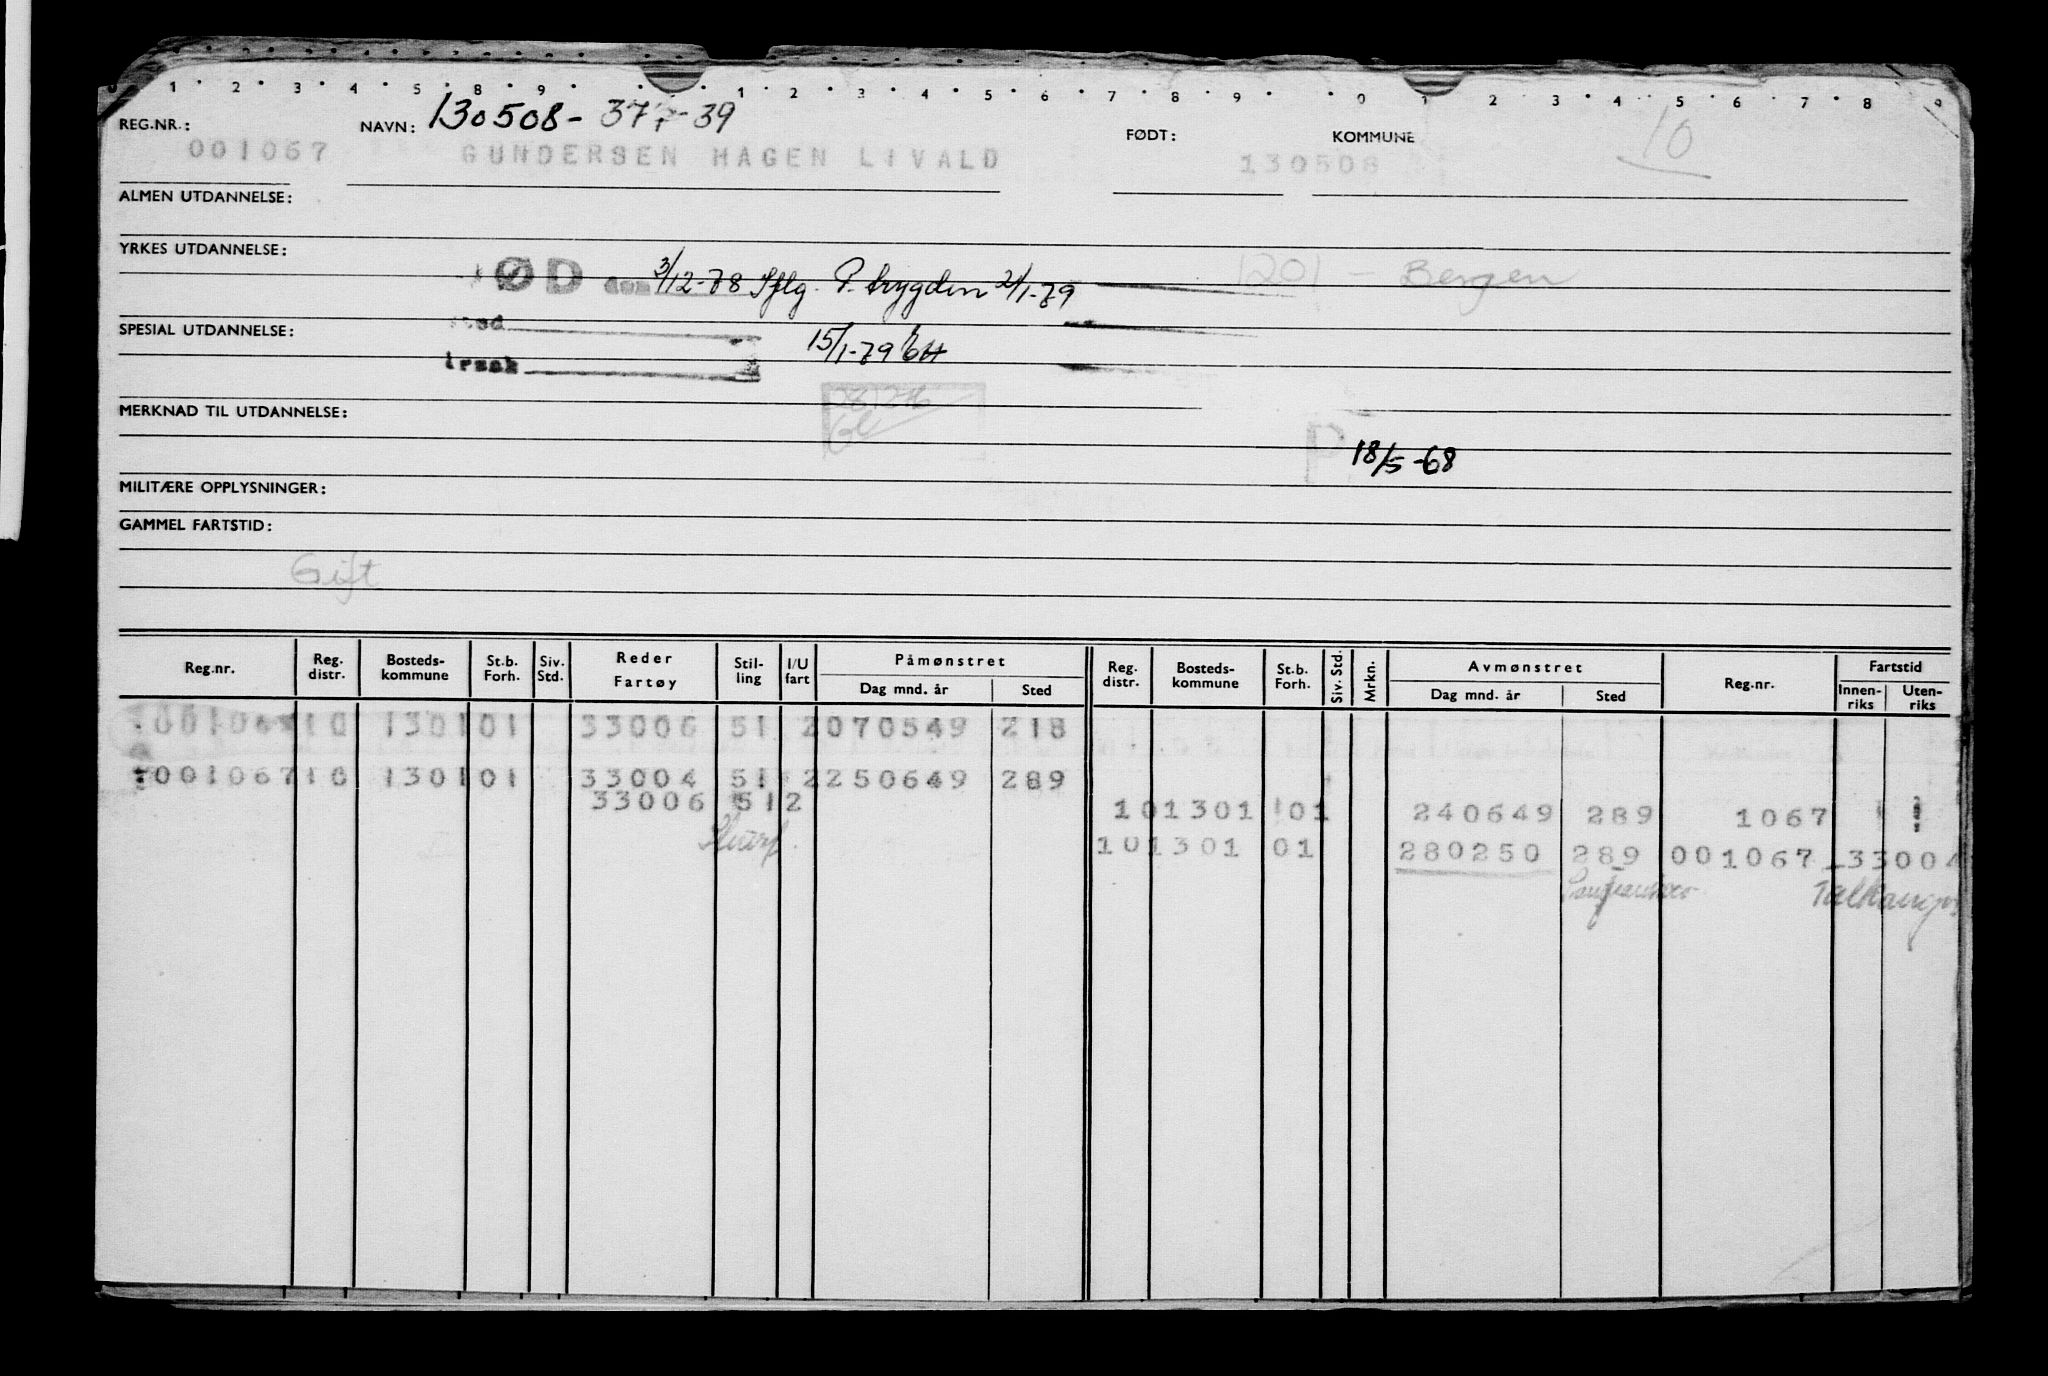 1 2 3 4 5 8 9 1 2 3 4 5 6 7 8 9 0 1 2 3 4 5 6 7 8 9
REG.NR.: NAVN: 130508- 39 FØDT: KOMMUNE 10
001067 GUNDERSEN HAGEN LIVALD 130508
ALMEN UTDANNELSE:
YRKES UTDANNELSE:
ØD den 3/12-78 Iflg. P. trygden 2/1-79 1201 - Bergen
sted
SPESIAL UTDANNELSE: 15/1-79
årsak
MERKNAD TIL UTDANNELSE:
P 18/5-68
MILITÆRE OPPLYSNINGER:
GAMMEL FARTSTID:
Gift
Reg.nr. Reg. distr. Bosteds- kommune St.b. Forh. Siv. Std. Reder Fartøy Stil- ling I/U fart Påmønstret Dag mnd. år Sted Reg. distr. Bosteds- kommune St.b. Forh. Siv. Std. Mrkn. Avmønstret Dag mnd. år Sted Reg.nr. Fartstid Innen- riks Uten- riks
00106 10 1301 01 33006 51 2 070549 218
001067 10 1301 01 33004 51 2 250649 289
33006 51 2 10 1301 01 240649 289 1067
10 1301 01 280250 289 001067 33004